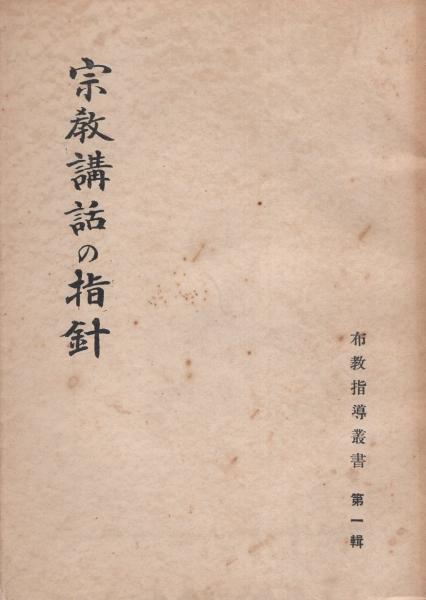 布教指導叢書 第一輯
宗教講話の指針